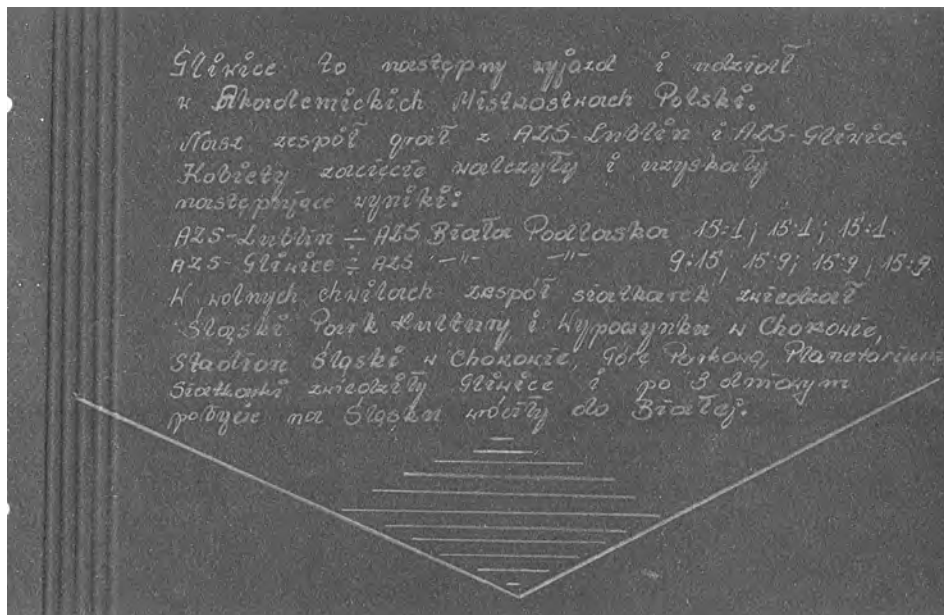 Gliwice to następny wyjazd i udział
w Akademickich Mistrostwach Polski.
Nasz zespół grał z AZS-Lublin i AZS-Gliwice.
Kobiety zacięcie walczyły i uzyskały
następujące wyniki:
AZS-Lublin ÷ AZS Biała Podlaska 15:1; 15:1; 15:1.
AZS-Gliwice ÷ AZS -"- -"- 9:15; 15:9; 15:9; 15:9
W wolnych chwilach zespół siatkarek zwiedzał
Śląski Park Kultury i Wypoczynku w Chorzowie,
Stadion Śląski w Chorzowie, Górę Parkową, Planetarium
Siatkarki zwiedziły Gliwice i po 3 dniowym
pobycie na Śląsku wróciły do Białej.